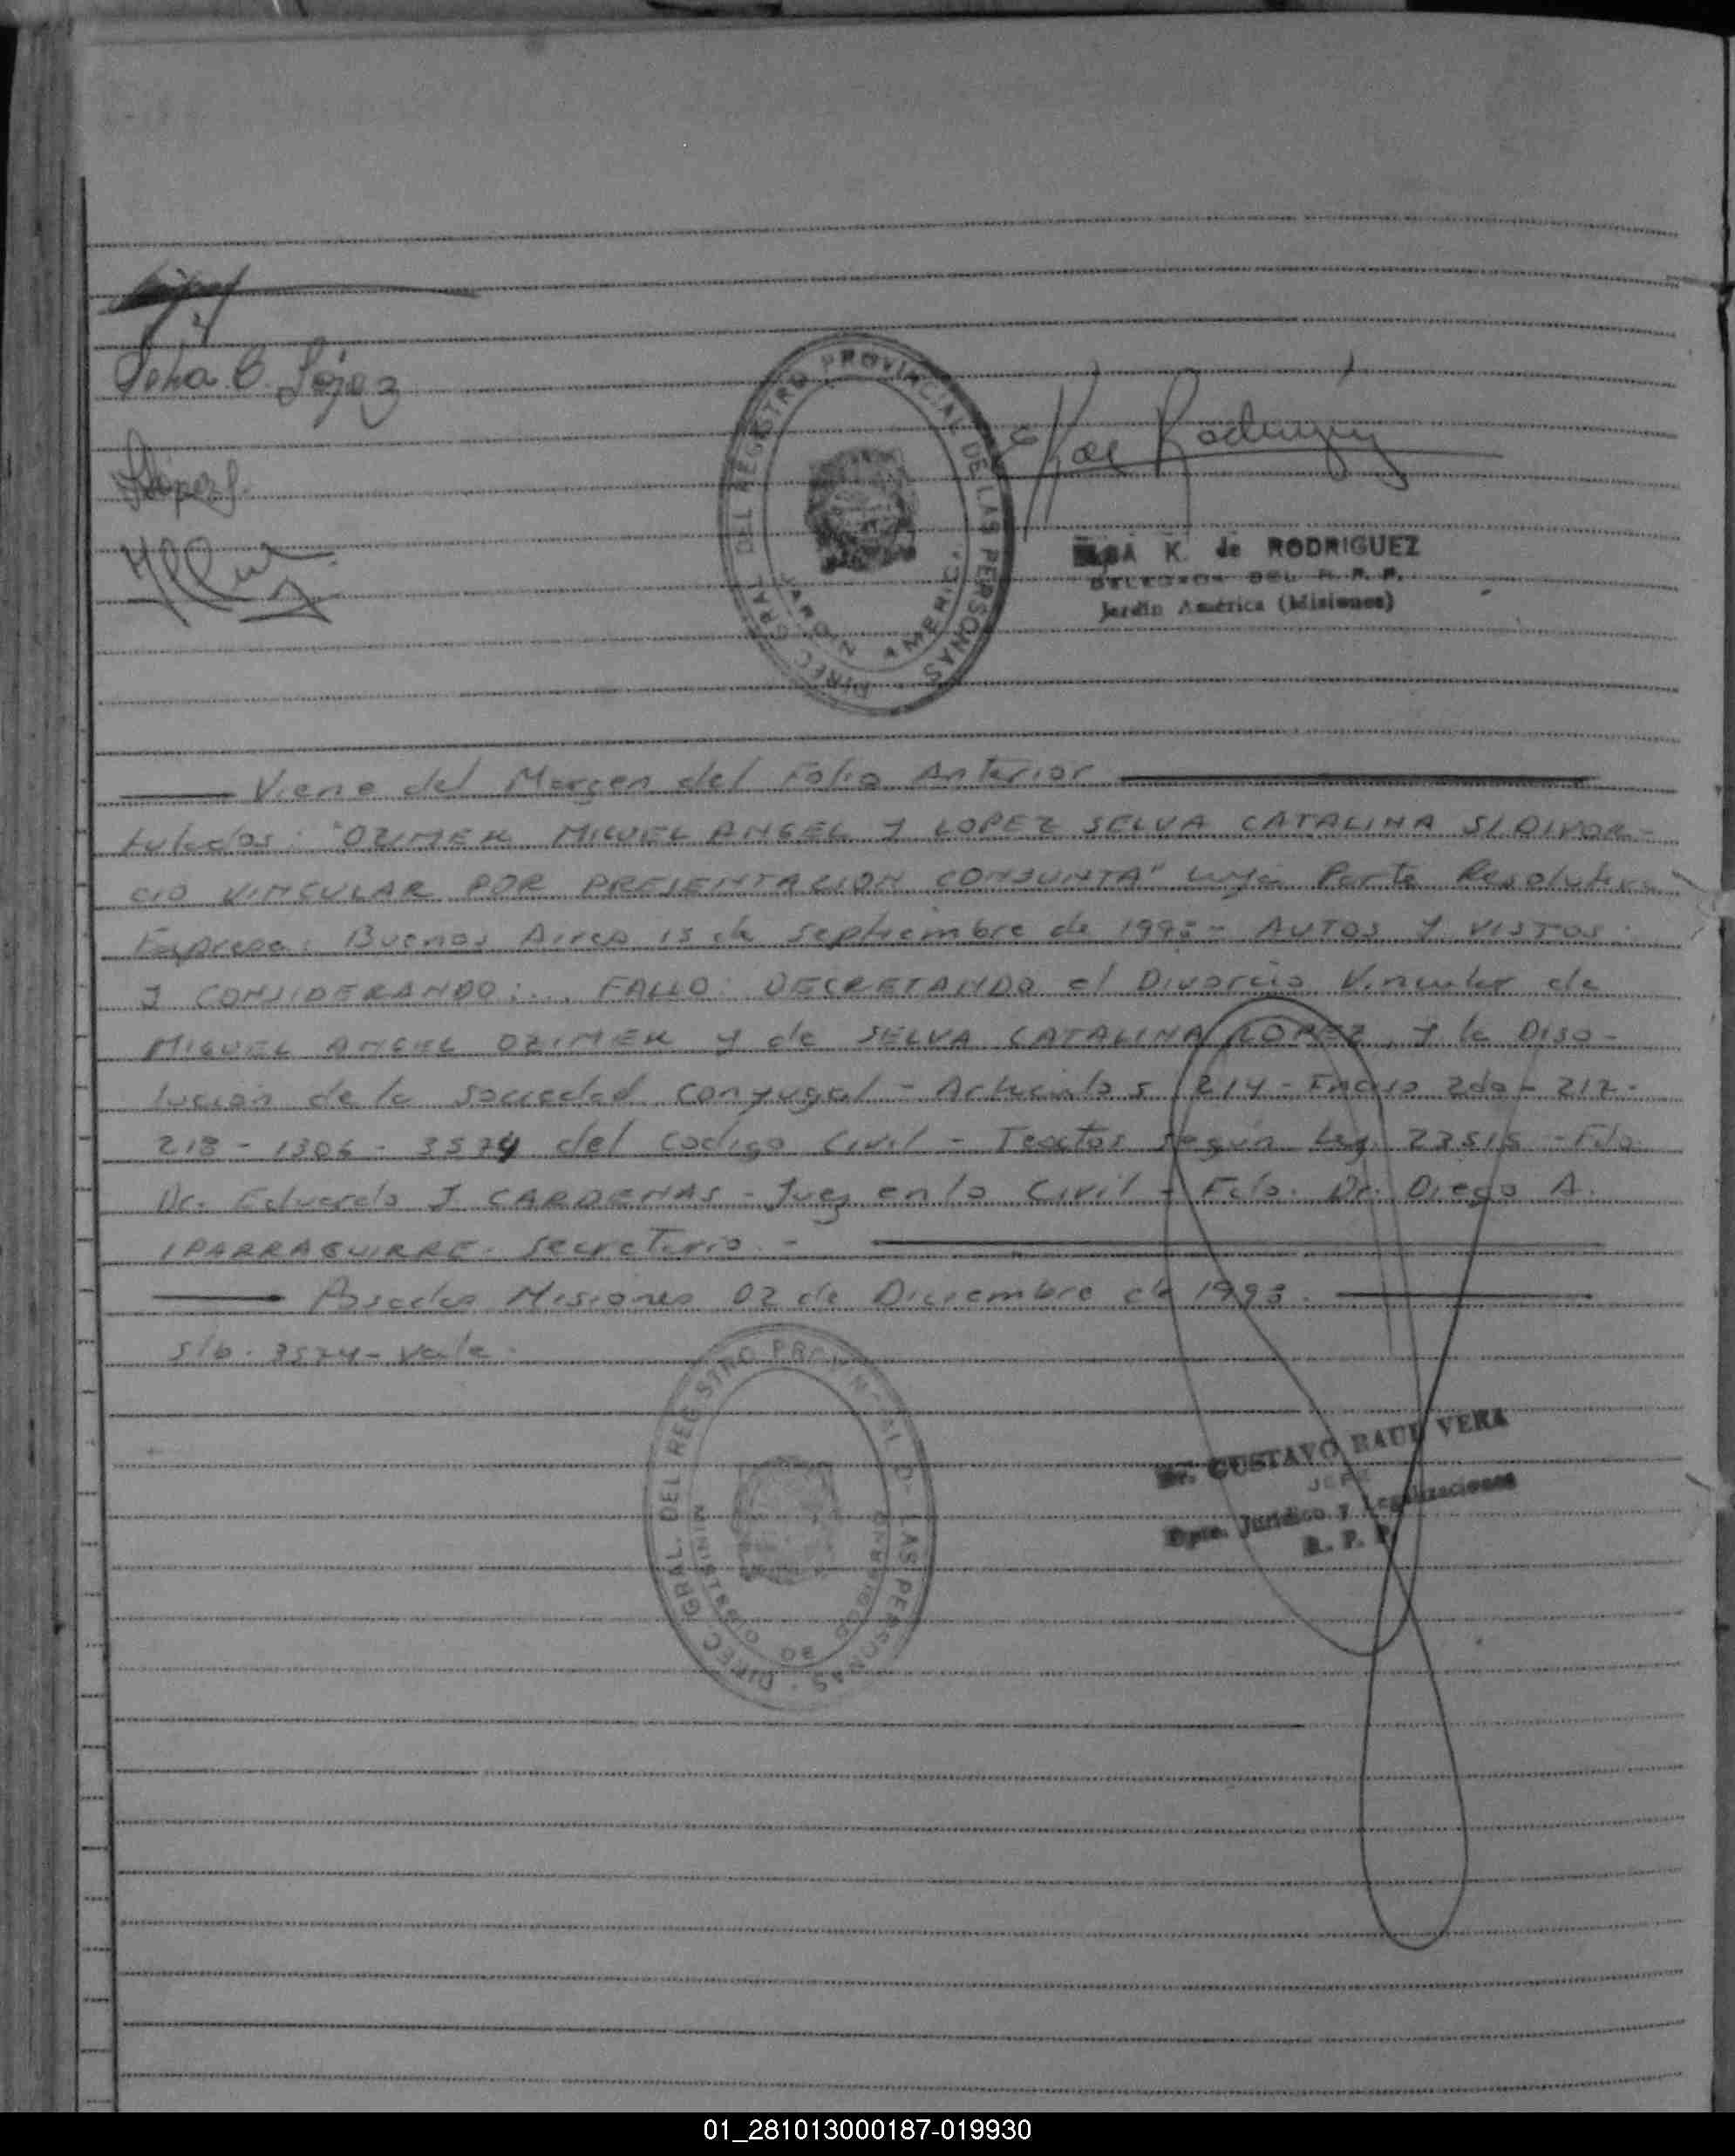 López
López
Rodriguez
DIREC. GRAL. DEL REGISTRO PROVINCIAL DE LAS PERSONAS
JARDIN AMERICA
K. de RODRIGUEZ
Jardín América (Misiones)
Viene del Margen del Folio Anterior
tulados: "OZIMEK MIGUEL ANGEL Y LOPEZ SELVA CATALINA S/DIVOR-
CIO VINCULAR POR PRESENTACION CONJUNTA" cuya Parte Resolutiva
Expresa: Buenos Aires 15 de Septiembre de - AUTOS Y VISTOS:
Y CONSIDERANDO:... FALLO: DECRETANDO el Divorcio Vincular de
MIGUEL ANGEL OZIMEK y de SELVA CATALINA LOPEZ, y la Diso-
lución de la Sociedad Conyugal - Articulos 214 - Inciso 2do - 217-
218 - 1306 - 3574 del Codigo Civil - Textos según Ley 23515 - Fdo.
Dr. Eduardo J. CARDENAS - Juez en lo Civil - Fdo. Dr. Diego A.
IPARRAGUIRRE. Secretario. -
Posadas Misiones 02 de Diciembre de 1993.
S/b. 3574 - Vale.
DIREC. GRAL. DEL REGISTRO PROVINCIAL DE LAS PERSONAS
MINISTERIO DE GOBIERNO
Dr. GUSTAVO RAUL VERA
JEFE
Dpto. Jurídico y Legalizaciones
R. P. P.
01_281013000187-019930